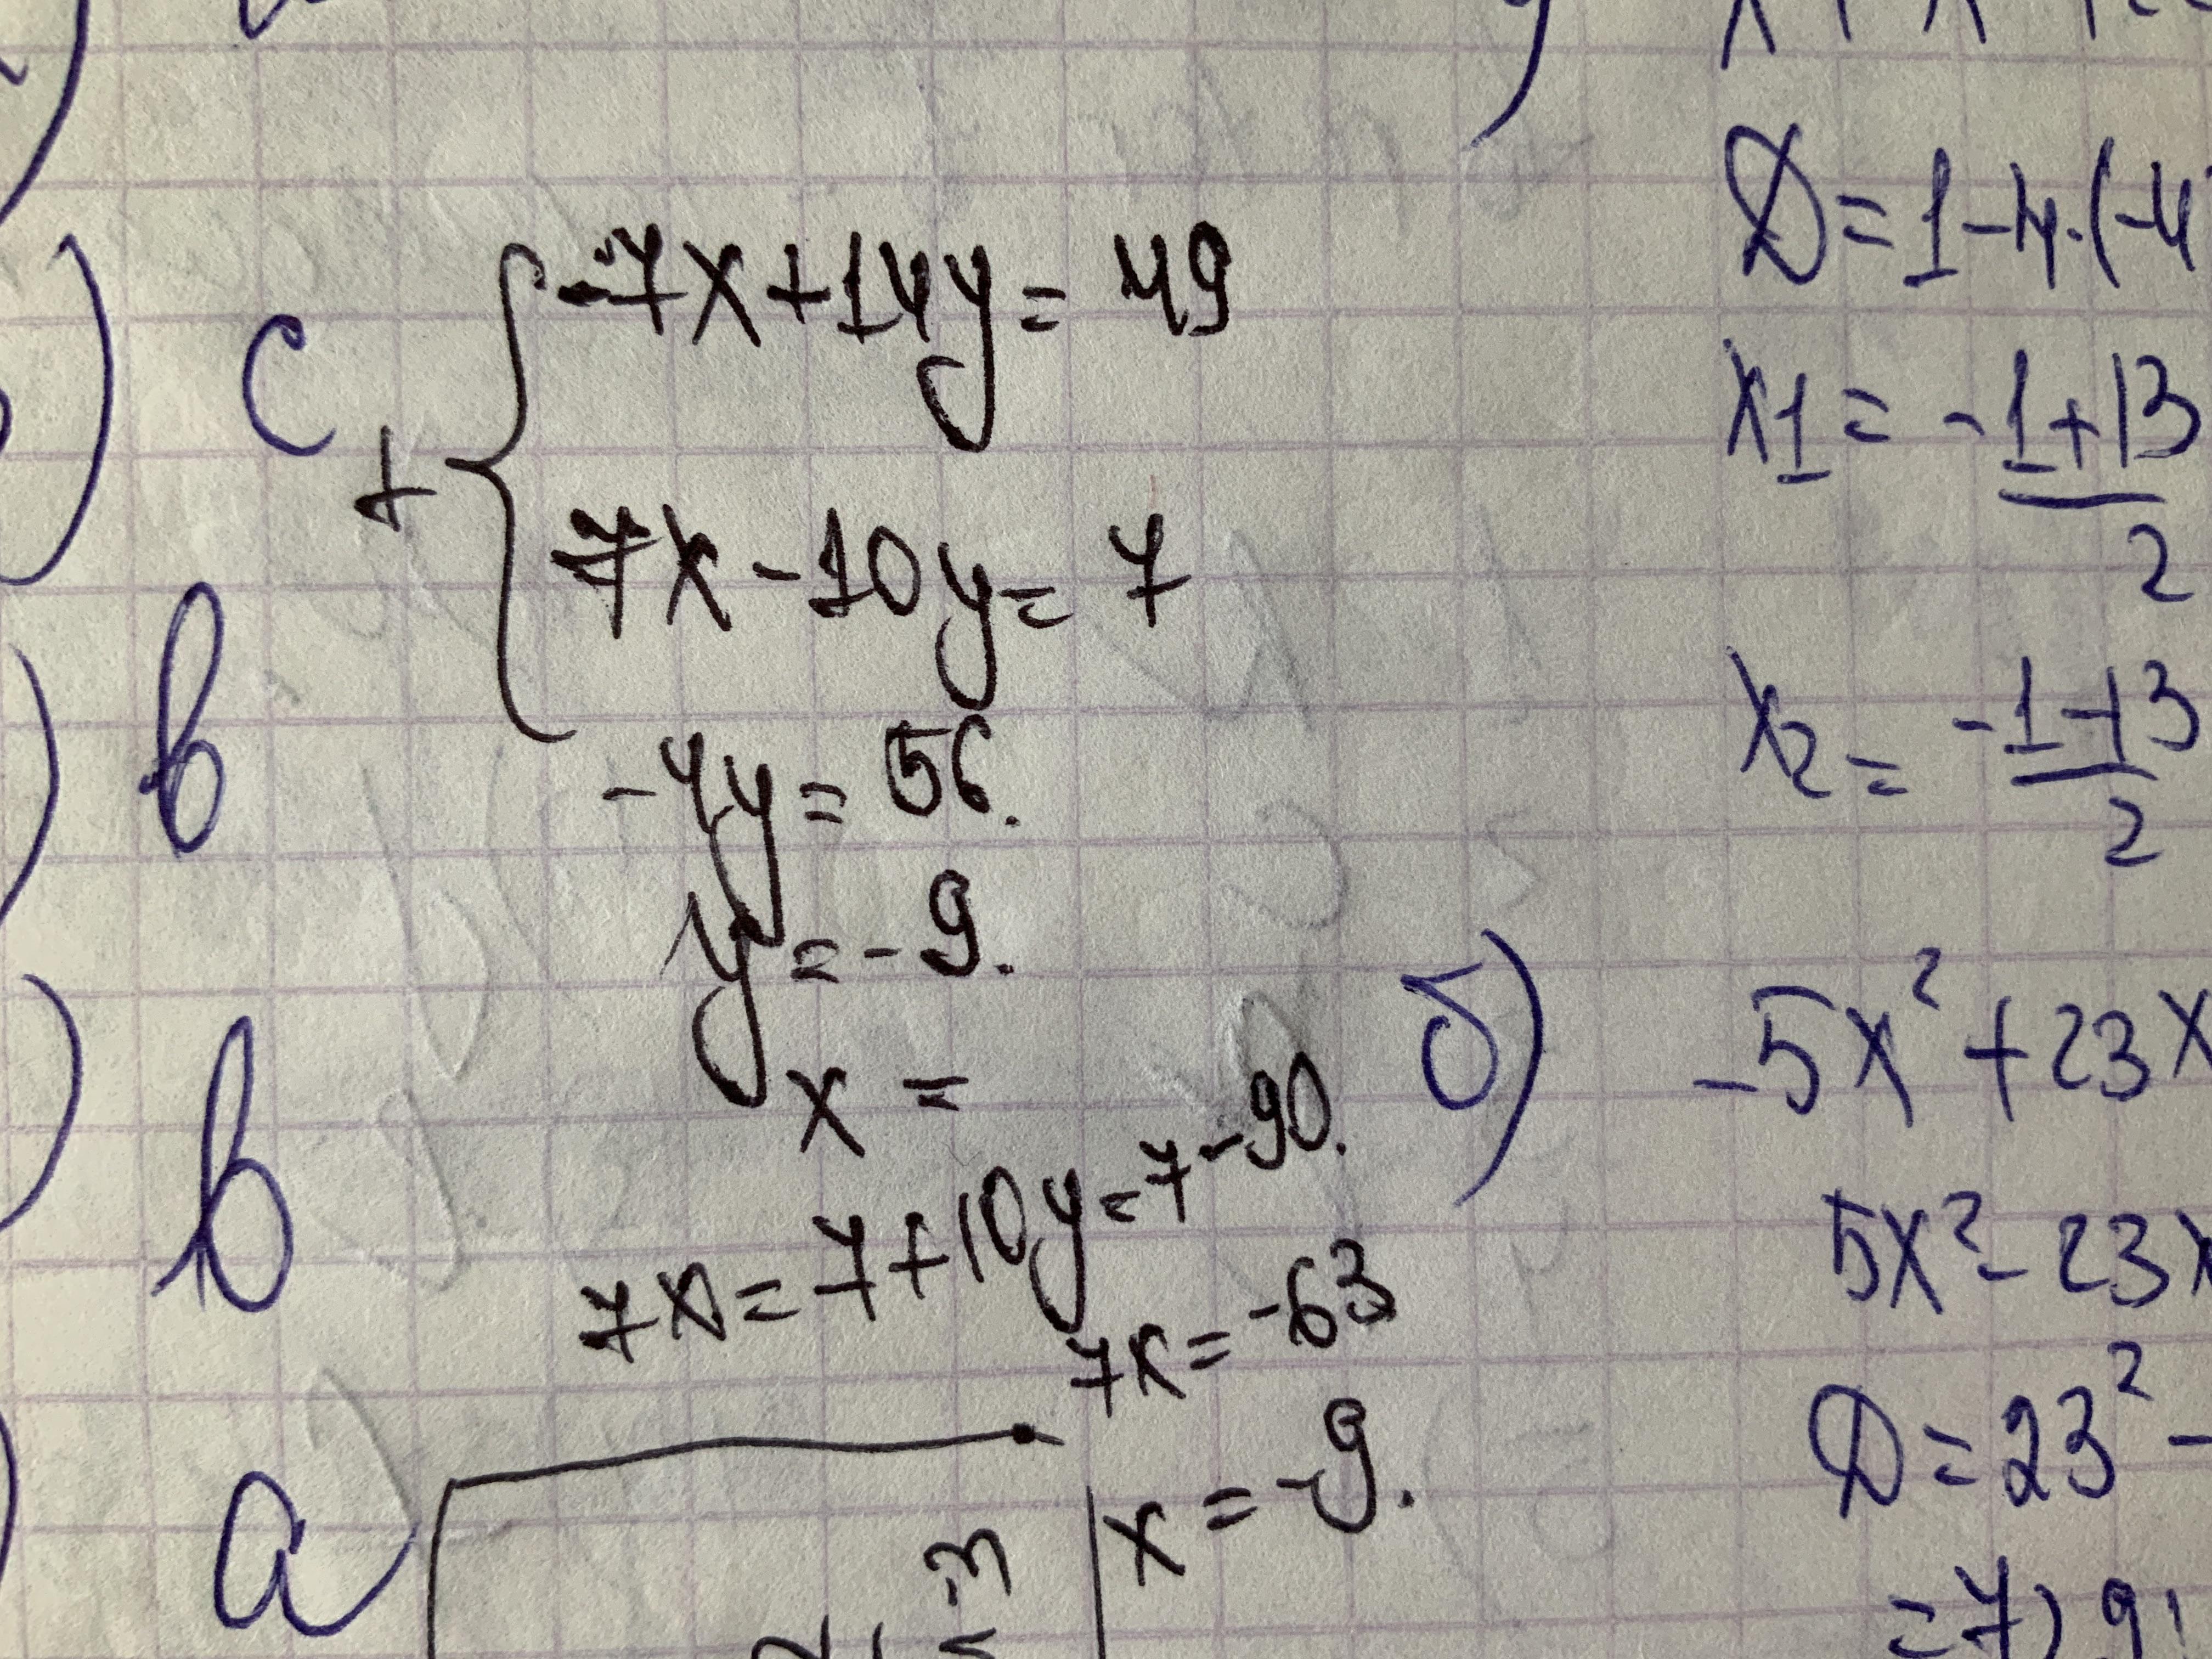 c
+ { -7x+14y= 49
7x-10y= 7
b
-4y= 56.
y=-9.
x =
b
7x= 7+10y=7-90.
7x=-63
x = -9.
a
D=1-4·(-4
x1= -1+13
2
x2= -1-13
2
б) -5x²+23x
5x²-23x
D=23²-